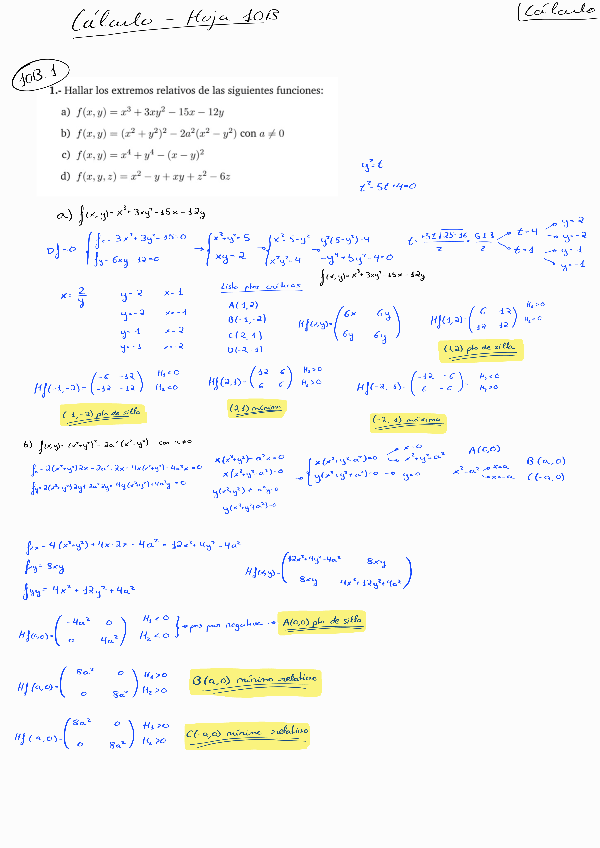 Cálculo - Hoja 10B
Cálculo
10B.1
1.- Hallar los extremos relativos de las siguientes funciones:
a) f(x, y) = x³ + 3xy² − 15x − 12y
b) f(x, y) = (x² + y²)² − 2a²(x² − y²) con a ≠ 0
c) f(x, y) = x⁴ + y⁴ − (x − y)²
d) f(x, y, z) = x² − y + xy + z² − 6z
y²=t
t²-5t+4=0
a) f(x,y)=x³+3xy²-15x-12y
Df=0 { fx= 3x²+3y²-15=0 → { x²+y²=5 → { x²=5-y² y²(5-y²)=4 t= = 5±3 / 2 → t=4 → y=2 → y=-2
fy= 6xy-12=0 xy=2 x²y²=4 -y⁴+5y²-4=0 → t=1 → y=1 → y=-1
f(x,y)=x³+3xy²-15x-12y
x= 2/y y=2 x=1 Lista ptos críticos
y=-2 x=-1 A(1,2)
y=1 x=2 B(-1,-2)
y=-1 x=-2 C(2,1)
D(-2,-1)
Hf(x,y)=(6x 6y
6y 6x)
Hf(1,2)=(6 12 H₁>0
12 12) H₂<0
(1,2) pto de silla
Hf(-1,-2)=(-6 -12 H₁<0
-12 -12) H₂<0
Hf(2,1)=(12 6 H₁>0
6 6) H₂>0
Hf(-2,-1)=(-12 -6 H₁<0
-6 -6) H₂>0
(-1,-2) pto de silla
(2,1) mínimo
(-2,-1) máximo
b) f(x,y)=(x²+y²)²-2a²(x²-y²) con a≠0
fx=2(x²+y²)2x-2a²·2x=4x(x²+y²)-4a²x=0
fy=2(x²+y²)2y+2a²2y=4y(x²+y²)+4a²y=0
x(x²+y²)-a²x=0
x(x²+y²-a²)=0
y(x²+y²)+a²y=0
y(x²+y²+a²)=0
→ { x(x²+y²-a²)=0 → x=0 → x²+y²=a² A(0,0)
y(x²+y²+a²)=0 → y=0 x²=a² → x=a → x=-a B(a,0) C(-a,0)
fx=4(x²+y²)+4x·2x-4a²=12x²+4y²-4a²
fy=8xy
fyy=4x²+12y²+4a²
Hf(x,y)=(12x²+4y²-4a² 8xy
8xy 4x²+12y²+4a²)
Hf(0,0)=(-4a² 0 H₁<0
0 4a²) H₂<0 } → pos par negativo → A(0,0) pto de silla
Hf(a,0)=(8a² 0 H₁>0
0 8a²) H₂>0
B(a,0) mínimo relativo
Hf(-a,0)=(8a² 0 H₁>0
0 8a²) H₂>0
C(-a,0) mínimo relativo